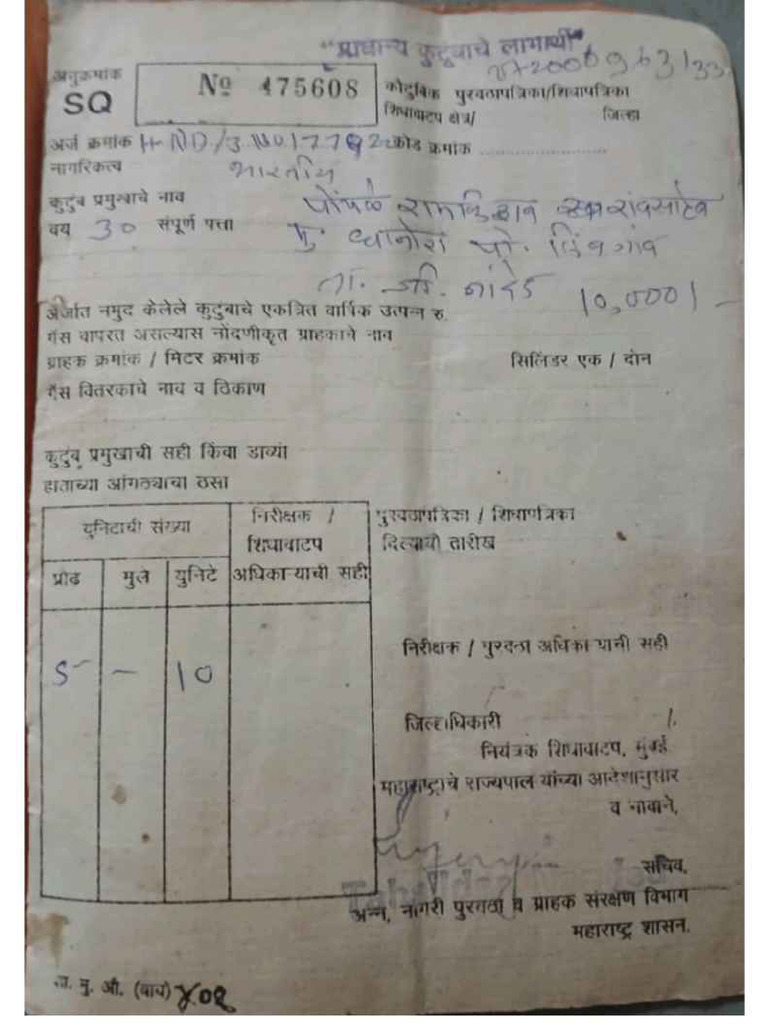 "प्राधान्य कुटुंबाचे लाभार्थी"
अनुक्रमांक
SQ
№ 475608
कौटुंबिक पुरवठापत्रिका/शिधापत्रिका
शिधावाटप क्षेत्र/ जिल्हा
अर्ज क्रमांक कोड क्रमांक
नागरिकत्व भारतीय
कुटुंब प्रमुखाचे नाव
वय 30 संपूर्ण पत्ता मु. धानोरा पो.
ता. जी. नांदेड
अर्जात नमुद केलेले कुटुंबाचे एकत्रित वार्षिक उत्पन्न रु. 10,000/-
गॅस वापरत असल्यास नोंदणीकृत ग्राहकाचे नाव
ग्राहक क्रमांक / मिटर क्रमांक सिलिंडर एक / दोन
गॅस वितरकाचे नाव व ठिकाण
कुटुंब प्रमुखाची सही किंवा डाव्या
हाताच्या आंगठ्याचा ठसा
युनिटाची संख्या
निरीक्षक /
शिधावाटप
अधिकाऱ्याची सही
प्रौढ मुले युनिटे
5 – 10
पुरवठापत्रिका / शिधापत्रिका
दिल्याची तारीख
निरीक्षक / पुरवठा अधिका यांची सही
जिल्हाधिकारी /.
नियंत्रक शिधावाटप, मुंबई
महाराष्ट्राचे राज्यपाल यांच्या आदेशानुसार
व नावाने,
सचिव,
अन्न, नागरी पुरवठा व ग्राहक संरक्षण विभाग
महाराष्ट्र शासन.